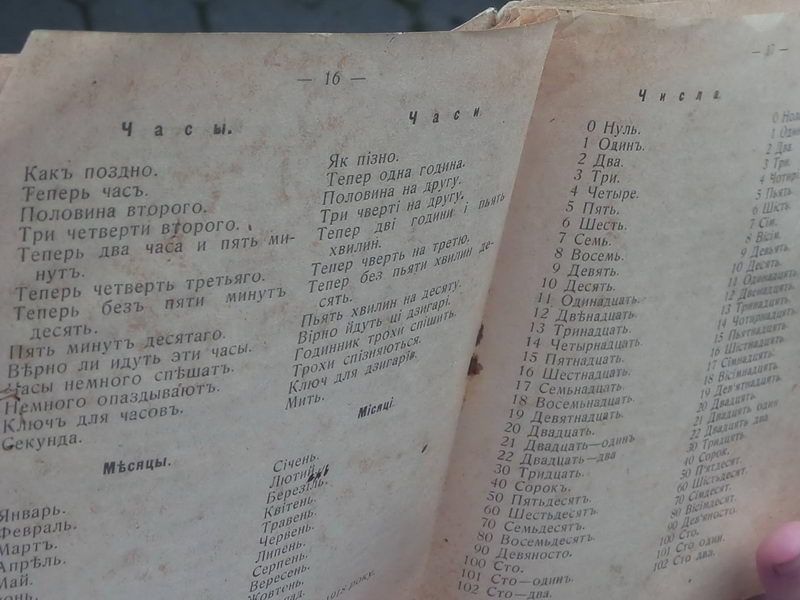 — 16 —
Часы.
Какъ поздно.
Теперь часъ.
Половина второго.
Три четверти второго.
Теперь два часа и пять ми-
нутъ.
Теперь четверть третьяго.
Теперь безъ пяти минутъ
десять.
Пять минутъ десятаго.
Вѣрно ли идутъ эти часы.
Часы немного спѣшатъ.
Немного опаздываютъ.
Ключъ для часовъ.
Секунда.
Мѣсяцы.
Январь.
Февраль.
Мартъ.
Апрѣль.
Май.
Часи
Як пізно.
Тепер одна година.
Половина на другу.
Три чверті на другу.
Тепер дві години і пьять
хвилин.
Тепер чверть на третю.
Тепер без пьяти хвилин де-
сять.
Пьять хвилин на десяту.
Вірно йдуть ці дзигарі.
Годинник трохи спішить.
Трохи спізняються.
Ключ для дзигарів.
Мить.
Місяці.
Січень.
Лютий.
Березіль.
Квітень.
Травень.
Червень.
Липень.
Серпень.
Вересень.
Жовтень.
Числа
0 Нуль.
1 Одинъ.
2 Два.
3 Три.
4 Четыре.
5 Пять.
6 Шесть.
7 Семь.
8 Восемь.
9 Девять.
10 Десять.
11 Одинадцать.
12 Двѣнадцать.
13 Тринадцать.
14 Четырнадцать.
15 Пятнадцать.
16 Шестнадцать.
17 Семьнадцать.
18 Восемьнадцать.
19 Девятнадцать.
20 Двадцать.
21 Двадцать—одинъ
22 Двадцать—два
30 Тридцать.
40 Сорокъ.
50 Пятьдесятъ.
60 Шестьдесятъ.
70 Семьдесятъ.
80 Восемьдесятъ.
90 Девяносто.
100 Сто.
101 Сто—одинъ.
102 Сто—два.
0
1
2 Два.
3 Три.
4
5 Пьять
6 Шість
7 Сім.
8 Вісім.
9 Девьять
10 Десять.
11 Одинадцять
12 Дванадцять.
13 Тринадцять.
14 Чотирнадцять
15 Пьятнадцять.
16 Шістнадцять.
17 Сімнадцять.
18 Вісімнадцять.
19 Дев'ятнадцять.
20 Двадцять.
21 Двадцять один
22 Двадцять два
30 Тридцять.
40 Сорок.
50 П'ятдесят.
60 Шістьдесят.
70 Сімдесят.
80 Вісімдесят.
90 Дев'яносто.
100 Сто.
101 Сто один.
102 Сто два.